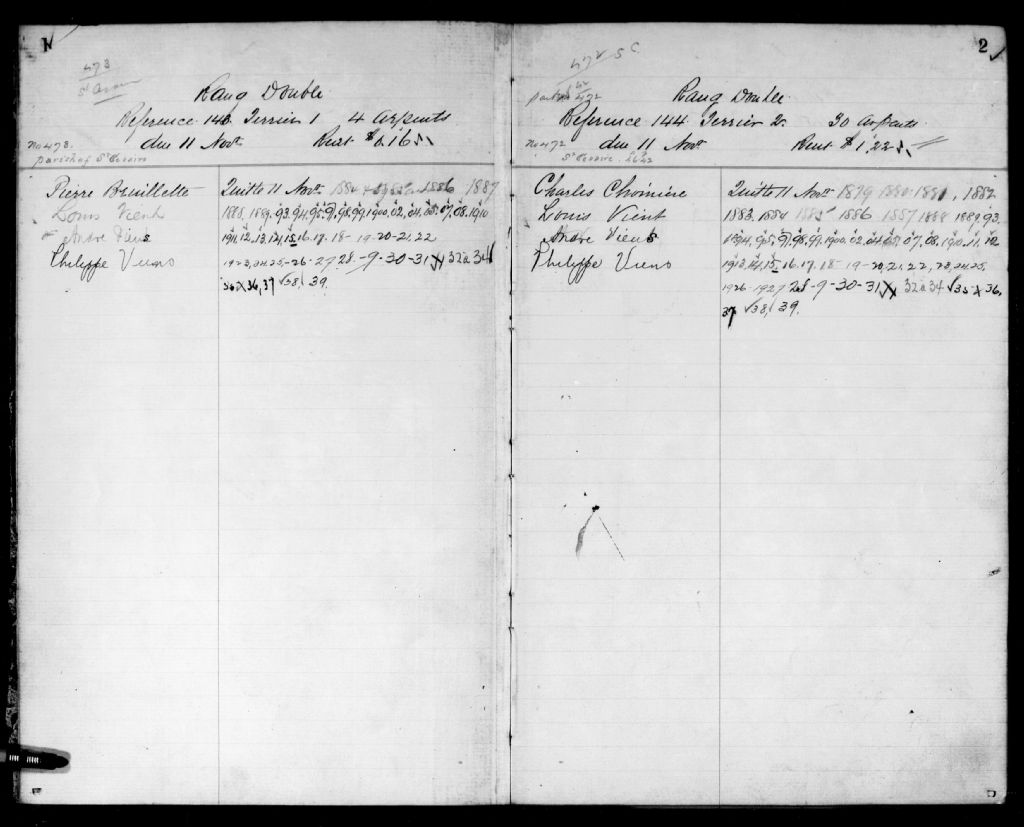 1
473
St
Rang Double
Reference 143. Terrier 1 4 arpents
No 473. due 11 Novr. Rent $0,16
parish of St Cesaire
Pierre Brouillette Quitte 11 Novr. 1884 1886 1887
Louis Vient 1888, 1889, 93, 94, 95, 97, 98, 99, 1900, 02, 04, 05, 07, 08, 1910
Andre Viens 1911, 12, 13, 14, 15, 16, 17, 18 - 19 - 20 - 21, 22
Philippe Viens 1923, 24, 25 - 26 - 27 28 - 9 - 30 - 31 32 a 34
35 36, 37 38, 39.
2
472
parish 472
Rang Double.
Reference 144. Terrier 2. 30 arpents.
No 472 due 11 Novr. Rent $1,22
St Cesaire
Charles Choiniere Quitte 11 Novr. 1879 1880 - 1881, 1882
Louis Vient 1883, 1884 1885 1886 1887 1888 1889, 93,
Andre Viens 1894, 95, 97, 98, 99, 1900, 02, 04, 05, 07, 08, 1910, 11, 12
Philippe Viens 1913, 14, 15, 16, 17, 18 - 19 - 20, 21, 22, 23, 24, 25,
1926 - 1927 28 - 9 - 30 - 31 32 a 34 35 36,
37 38, 39.